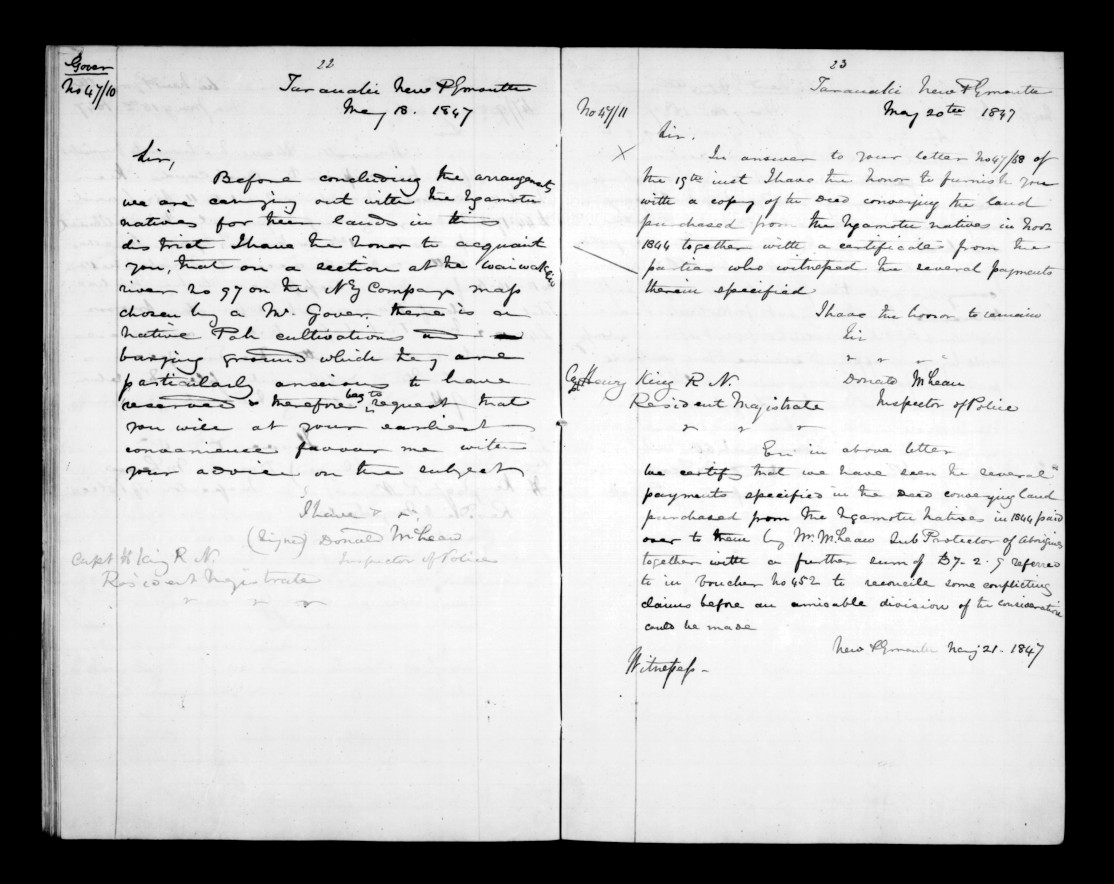 Gover
No 47/10
22
Taranaki New Plymouth
May 18. 1847
Sir,
Before concluding the arrangements
we are carrying out with the Ngamotu
natives for their lands in this
district I have the honor to acquaint
you, that on a section at the Waiwakaiho
river No 97 on the NZ Company map
chosen by a Mr. Gover, there is a
Native Pah cultivations and a
burying ground which they are
particularly anxious to have
reserved & therefore beg to request that
you will at your earliest
convenience favour me with
your advice on this subject
I have &c.
(Signed) Donald McLean
Capt H King R N. Inspector of Police
Resident Magistrate
23
Taranaki New Plymouth
No 47/11 May 20th 1847
Sir.
In answer to your letter No 47/58 of
the 19th inst I have the honor to furnish you
with a copy of the Deed conveying the land
purchased from the Ngamotu natives in Novr
1844 together with a certificate from the
parties who witnessed the several payments
therein specified
I have the honor to remain
Sir
" " "
Captn Henry King R N. Donald McLean
Resident Magistrate Inspector of Police
" " "
En in above letter
We certify that we have seen the several
payments specified in the Deed conveying land
purchased from the Ngamotu Natives in 1844 paid
over to them by Mr. McLean Sub Protector of Aborigines
together with a further sum of £7-2-9 referred
to in Voucher No 452 to reconcile some conflicting
claims before an amicable division of the consideration
could be made
New Plymouth May 21- 1847
Witnesses-